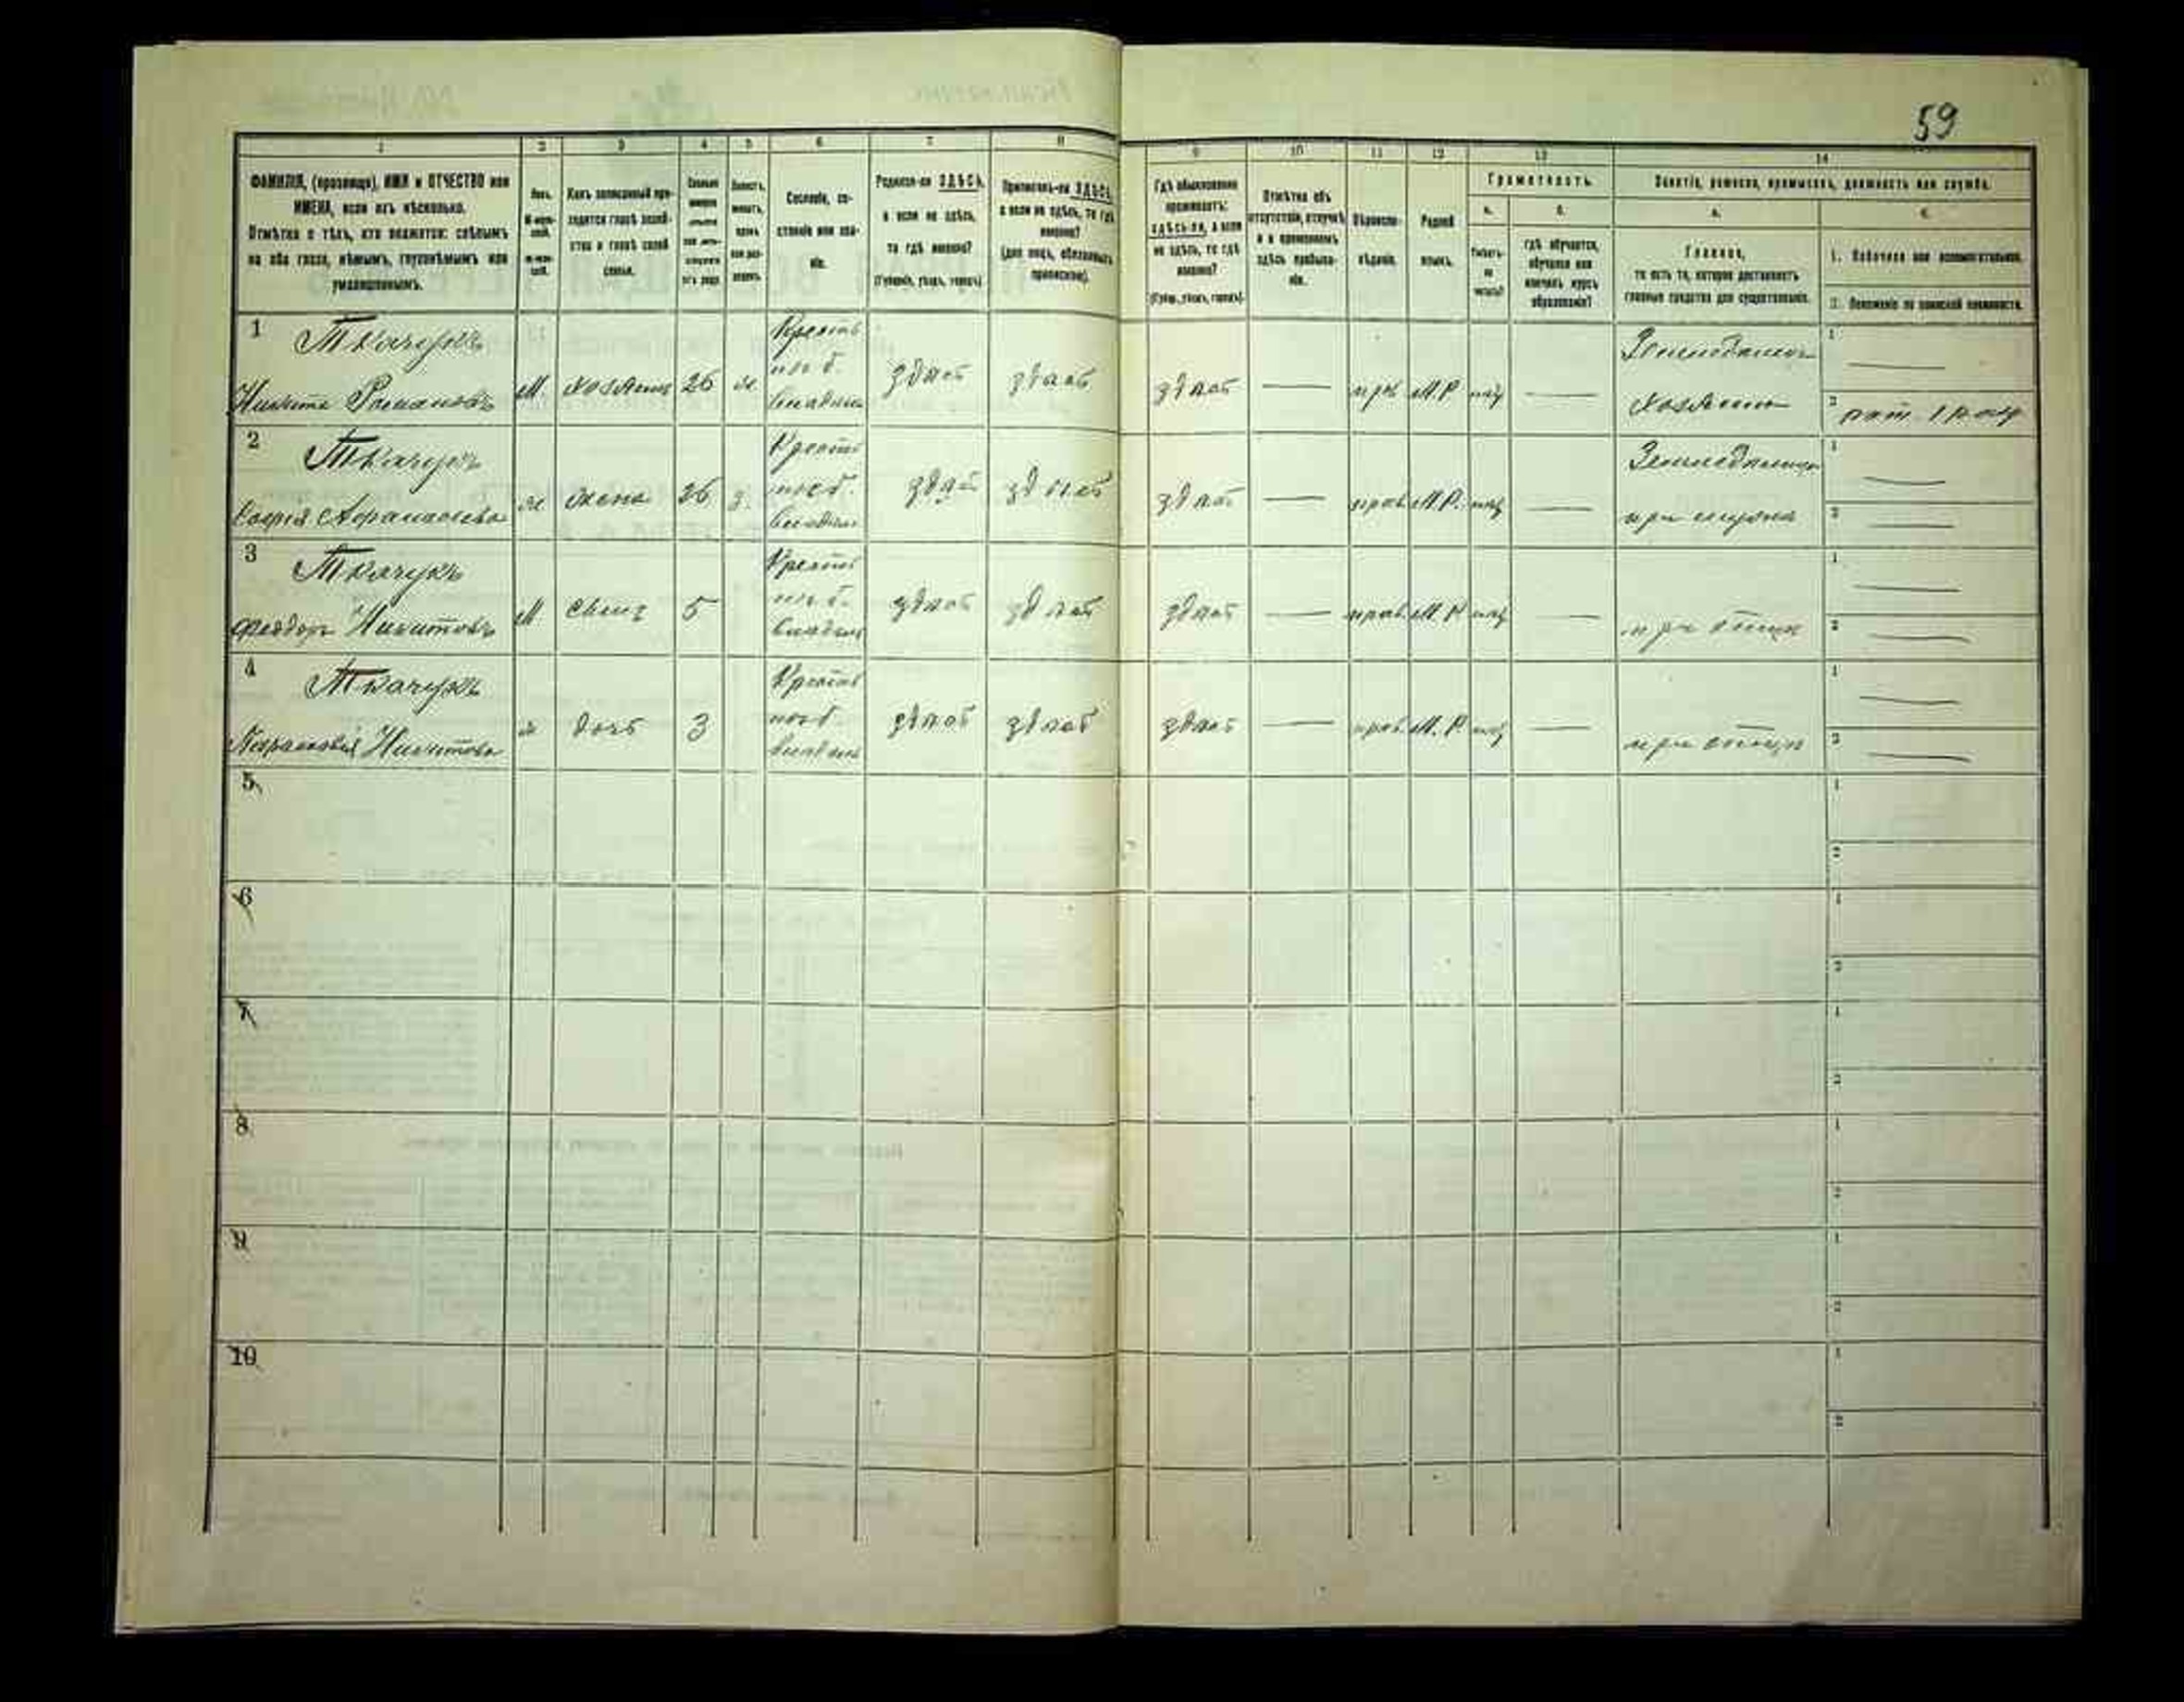 59
1 2 3 4 5 6 7 8 9 10 11 12 13 14
ФАМИЛІЯ, (прозвище), ИМЯ и ОТЧЕСТВО или
ИМЕНА, если ихъ нѣсколько.
Отмѣтка о тѣхъ, кто окажется: слѣпымъ
на оба глаза, нѣмымъ, глухонѣмымъ или
умалишеннымъ.
Полъ.
Какъ записанный при-
ходится главѣ хозяй-
ства и главѣ своей
семьи.
Сословіе, со-
стояніе или зва-
ніе.
Родился-ли ЗДѢСЬ,
а если не здѣсь,
то гдѣ именно?
(Губернія, уѣздъ, городъ)
Приписанъ-ли ЗДѢСЬ,
а если не здѣсь, то гдѣ
именно?
(для лицъ, обязанныхъ
припискою).
Гдѣ обыкновенно
проживаетъ:
здѣсь-ли, а если
не здѣсь, то гдѣ
именно?
(Губер., уѣздъ, городъ).
Отмѣтка объ
отсутствіи, отлучкѣ
и о временномъ
здѣсь пребыва-
ніи.
Вѣроиспо-
вѣданіе.
Родной
языкъ.
Грамотность.
а. б.
Умѣетъ-
ли
читать?
гдѣ обучается,
обучался или
кончилъ курсъ
образованія?
Занятіе, ремесло, промыселъ, должность или служба.
а. б.
Главное,
то есть то, которое доставляетъ
главныя средства для существованія.
1. Побочное или вспомогательное.
2. Положеніе по воинской повинности.
1 Ткачукъ
Никита Романовъ
М хозяинъ 26 ж
Крестьян
изъ б.
владѣл
здѣсь здѣсь здѣсь — прав М.Р нѣт —
Земледѣлецъ
хозяинъ
1 —
2 рат. 1 раз
2 Ткачукъ
Софія Афанасьева
ж жена 26 з.
Крестьян
изъ б.
владѣл
здѣсь здѣсь здѣсь — прав. М.Р. нѣт —
Земледѣлецъ
при мужѣ
1 —
2 —
3 Ткачукъ
Феодоръ Никитовъ
М сынъ 5
Крестьян
изъ б.
владѣл
здѣсь здѣсь здѣсь — прав. М.Р нѣт —
при отцѣ
1 —
2 —
4 Ткачукъ
Парасковія Никитова
ж дочь 3
Крестьян
изъ б.
владѣл
здѣсь здѣсь здѣсь — прав. М.Р. нѣт —
при отцѣ
1 —
2 —
5 1
2
6 1
2
7 1
2
8 1
2
9 1
2
10 1
2